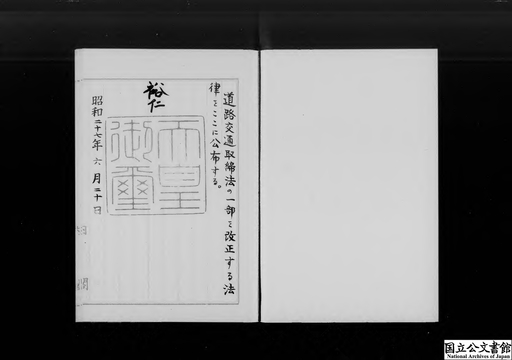 道路交通取締法の一部を改正する法
律をここに公布する。
裕仁
天皇
御璽
昭和二十七年六月二十日
内閣
国立公文書館
National Archives of Japan